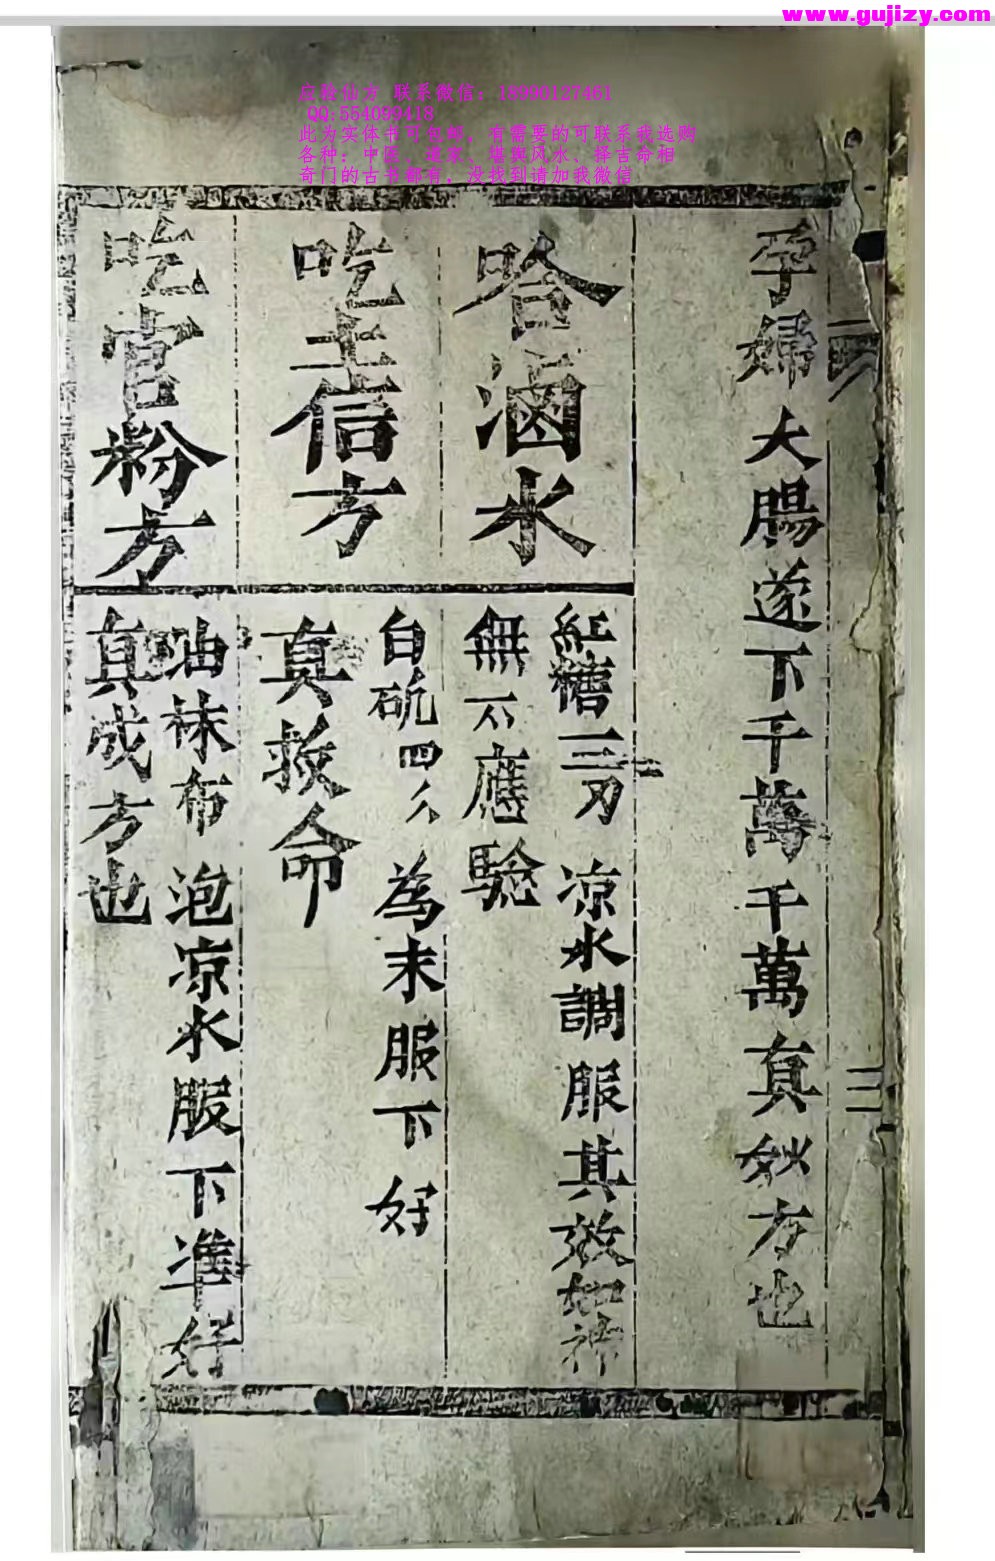 www.gujizy.com
应验仙方 联系微信：18990127461
QQ:554099418
此为实体书可包邮，有需要的可联系我选购
各种：中医、道家、堪舆风水、择吉命相
奇门的古书都有，没找到请加我微信
三
孕婦大腸遂下千萬千萬真妙方也
哈滷水
紅糖三刃 凉水調服其效如神
無不應驗
吃土信方
白矾四 為末服下好
真救命
吃官粉方
油抹布泡凉水服下準好
真成方也